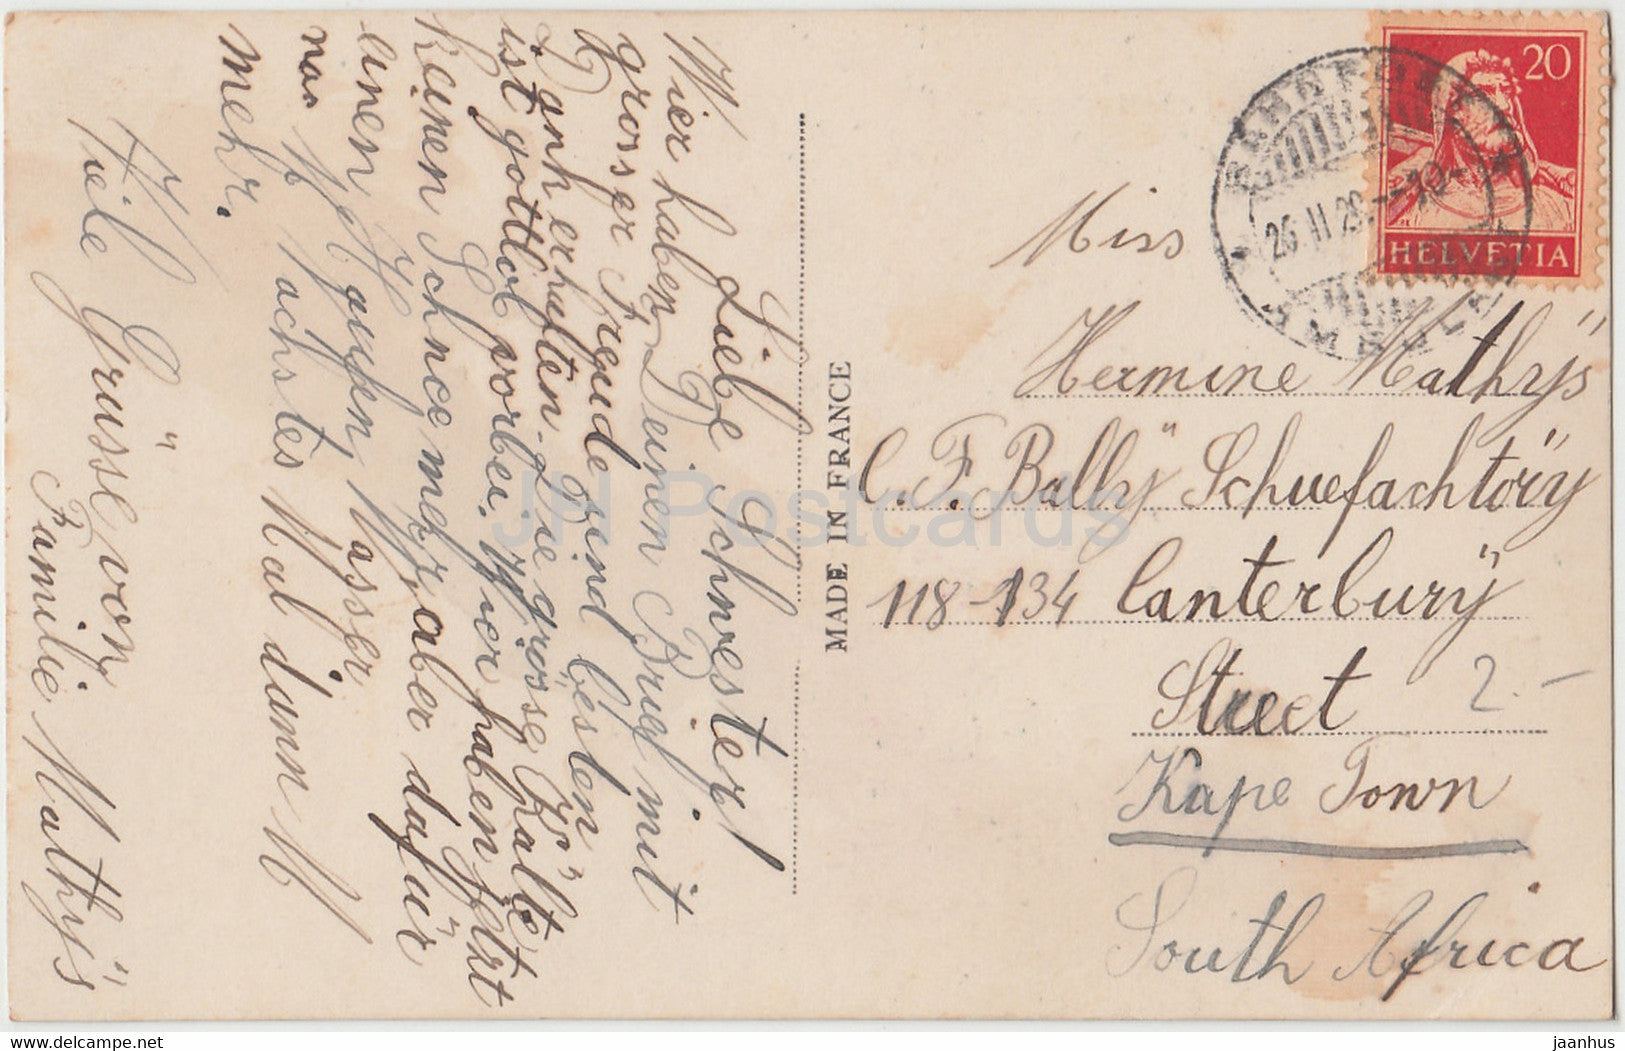 Liebe Schwester!
Wier haben Deinen Brief mit
grosser Freude und besten
Dank erhalten. Die grösse Kälte
ist gottlob vorbei. Wier haben Jetzt
keinen Schnee mehr, aber dafür
einen Haufen Wasser
Nächstes Mal dann
mehr.
Fiele Grüsse von
Familie Mathÿs
MADE IN FRANCE
20
HELVETIA
26.II.29.-10-
Miss
Hermine Mathÿs
C. F. Ballÿ Schuefachtörÿ
118-134 Canterburÿ
Street
Kape Town
South Africa
2.-
JH Postcards
jaanhus